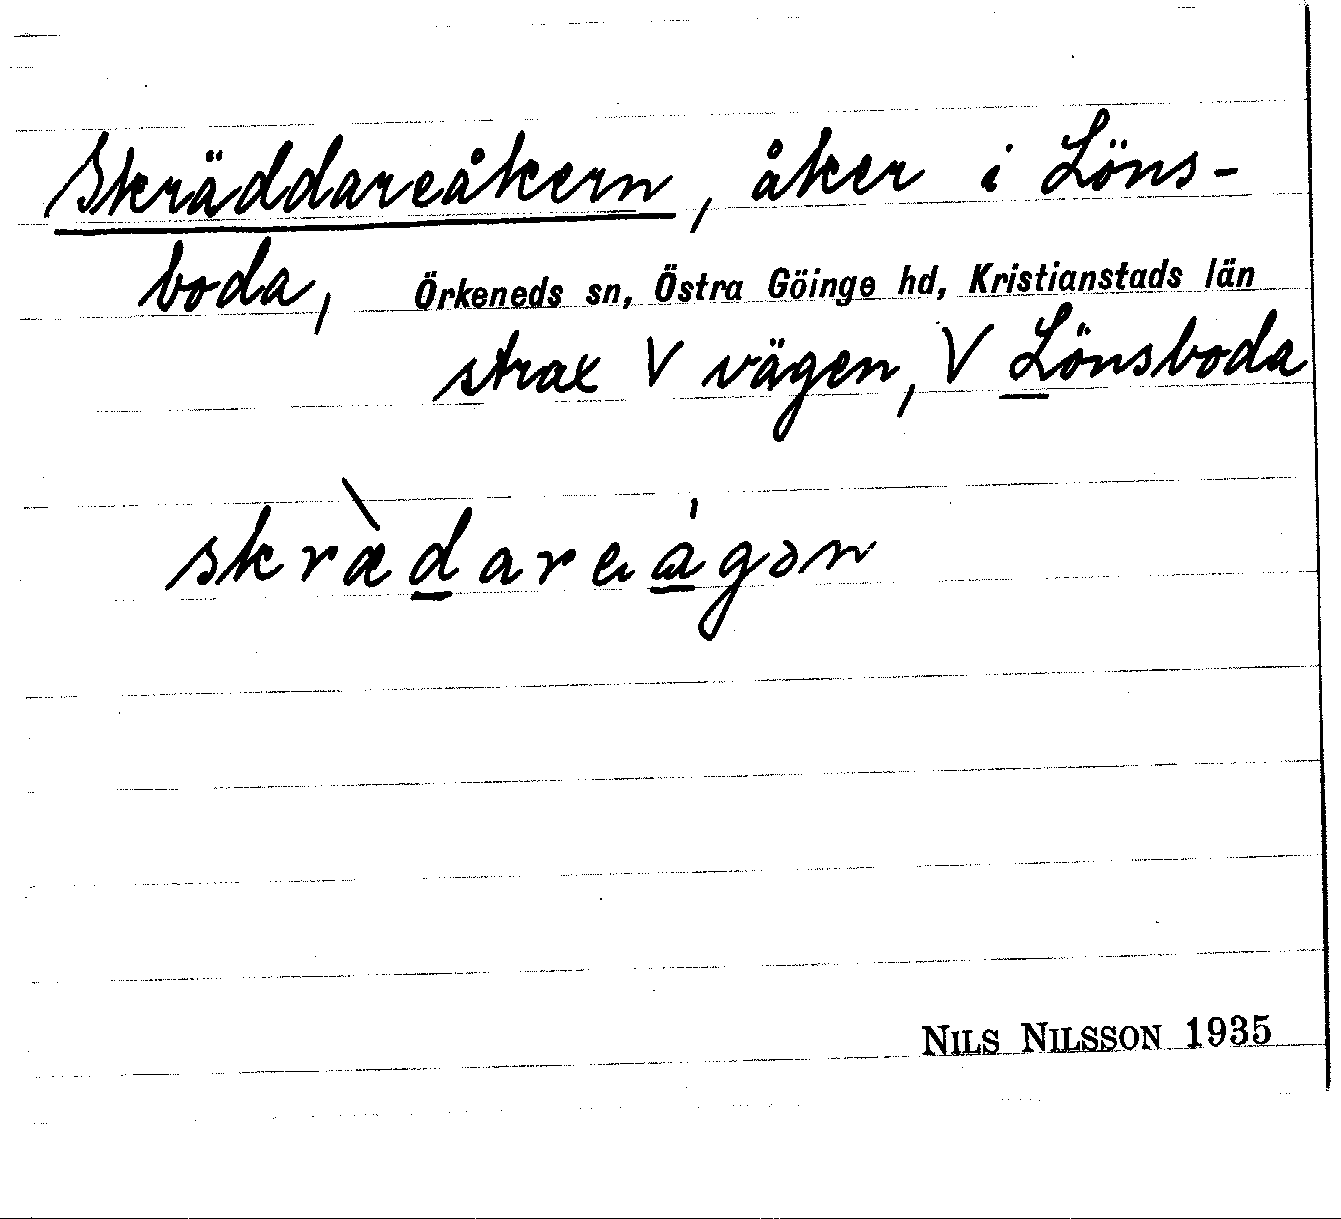 Skräddareåkern, åker i Löns-
boda, Örkeneds sn, Östra Göinge hd, Kristianstads län
strax V vägen, V Lönsboda
skræ̀dareágən
NILS NILSSON 1935